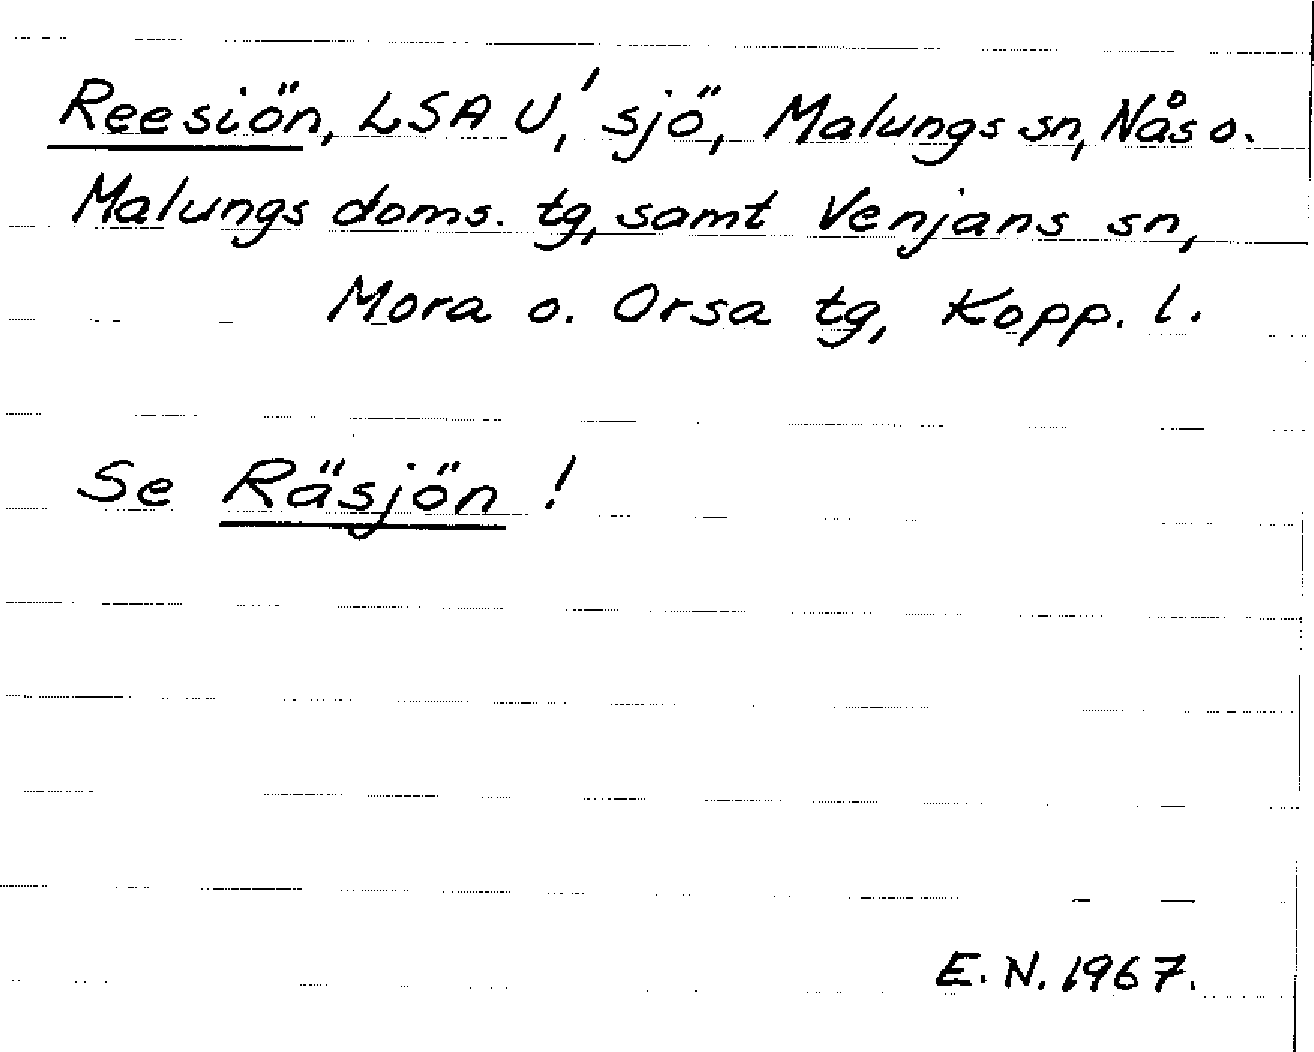 Reesiön, LSA U', sjö, Malungs sn, Nås o.
Malungs doms. tg, samt Venjans sn,
Mora o. Orsa tg, Kopp. l.
Se Räsjön !
E. N. 1967.